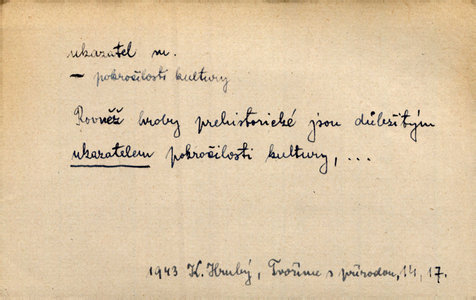 ukazatel m.
— pokročilosti kultury
Rovněž hroby prehistorické jsou důležitým
ukazatelem pokročilosti kultury, ...
1943 K. Hrubý, Tvoříme s přírodou, 14, 17.